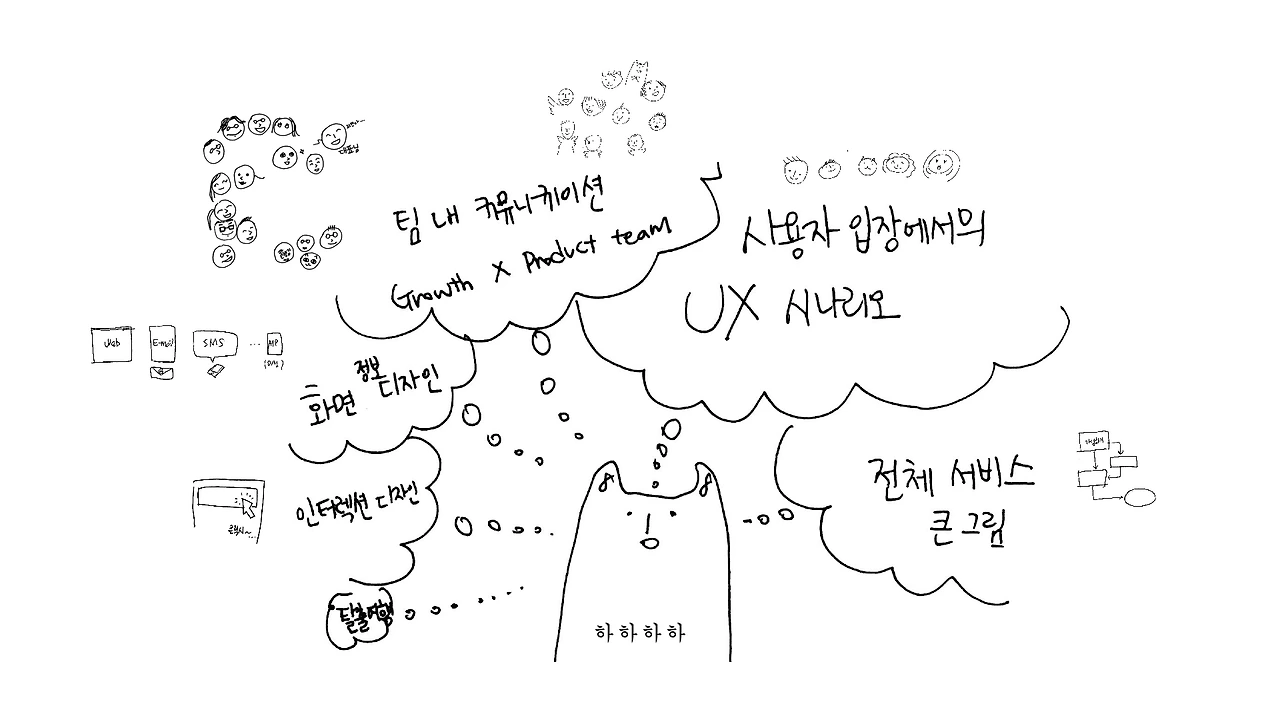 대표님
팀 내 커뮤니케이션
Growth X Product team
사용자 입장에서의
UX 시나리오
Web
E-mail
SMS
...
MP
(DM)
화면 정보 디자인
인터렉션 디자인
전체 서비스
큰 그림
탈출여행
하 하 하 하